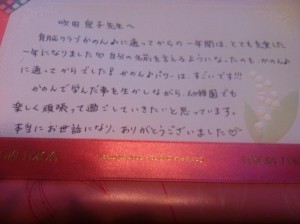 吹田 聖子先生へ
育脳クラブかのんぷに通ってからの一年間は、とても充実した
一年になりました♡ 自分の名前を言えるようになったのも、かのんぷ
に通ってからでした!! かのんぷパワーは、すごいです!!!
かのんで学んだ事を生かしながら、幼稚園でも
楽しく頑張って過ごしていきたいと思っています。
本当にお世話になり、ありがとうございました♡